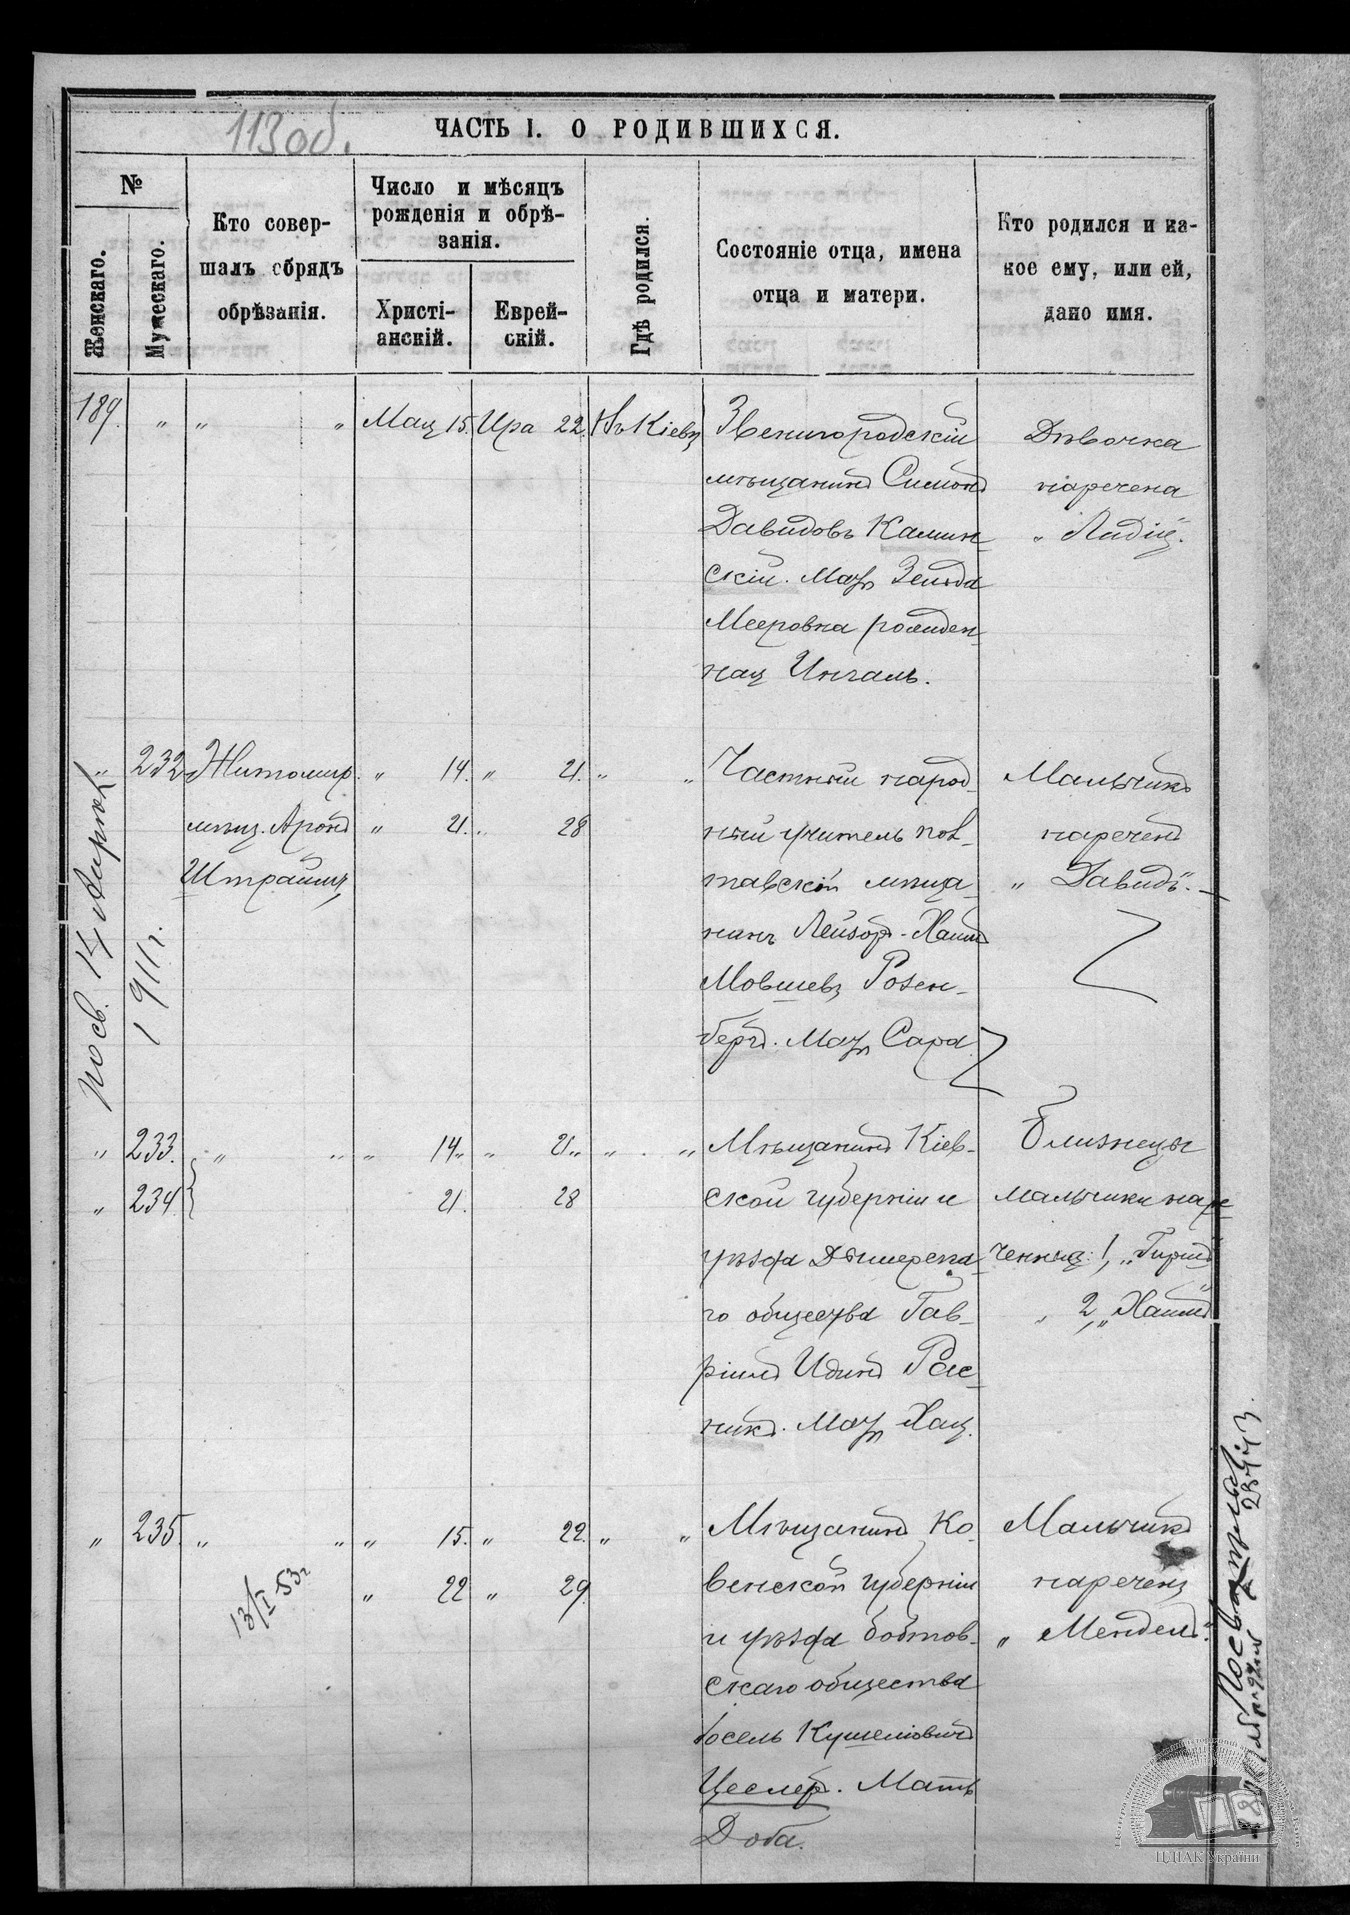 113 об.
ЧАСТЬ I. О РОДИВШИХСЯ.
№
Женскаго.
Мужескаго.
Кто совер-
шалъ обрядъ
обрѣзанія.
Число и мѣсяцъ
рожденія и обрѣ-
занія.
Христі-
анскій.
Еврей-
скій.
Гдѣ родился.
Состояніе отца, имена
отца и матери.
Кто родился и ка-
кое ему, или ей,
дано имя.
189. " " " Мая 15. Ира 22. Въ Кіевѣ
Звенигородскій
мѣщанинъ Симонъ
Давидовъ Камин-
скій. Мать Зельда
Мееровна рожден-
ная Ингаль.
Дѣвочка
наречена
" Лидія".
" 232 Житомир. " 14. " 21. " "
мѣщ. Аронъ " 21. " 28
Штраймъ
Частный народ-
ный учитель пол-
тавскій мѣща-
нинъ Лейзоръ-Хаимъ
Мовшевъ Розен-
бергъ. Мать Сара
Мальчикъ
нареченъ
" Давидъ".
посв. 14 Апрѣля
1911 г.
" 233. " " " 14 " " 21 " " "
" 234. 21. 28
Мѣщанинъ Кіев-
ской губерніи и
уѣзда Дымерска-
го общества Гав-
ріилъ Идинъ Рас-
никъ. Мать Хая.
Близнецы
мальчики наре-
ченные: 1, "Гиршъ"
" 2, "Хаимъ"
" 235. " " " 15. " 22. " "
" 22 " 29.
13/I 53 г
Мѣщанинъ Ко-
венской губерніи
и уѣзда Бобтов-
скаго общества
Іосель Кушелевичъ
Цеслеръ. Мать
Доба.
Мальчикъ
нареченъ
" Мендель".
ЦДІАК України